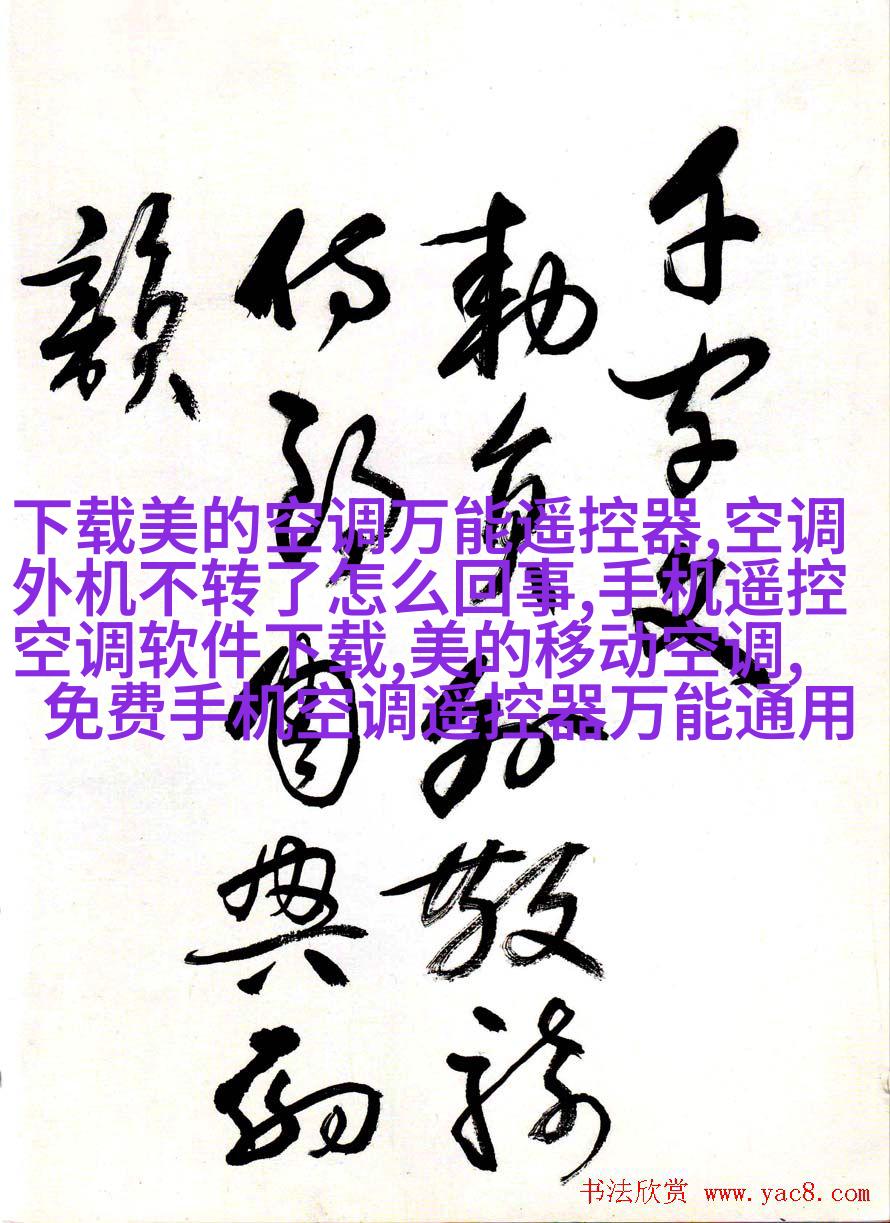 千字文
勅员外散骑
侍郎周兴嗣
韻
下载美的空调万能遥控器,空调
外机不转了怎么回事,手机遥控
空调软件下载,美的移动空调,
免费手机空调遥控器万能通用
书法欣赏 www.yac8.com